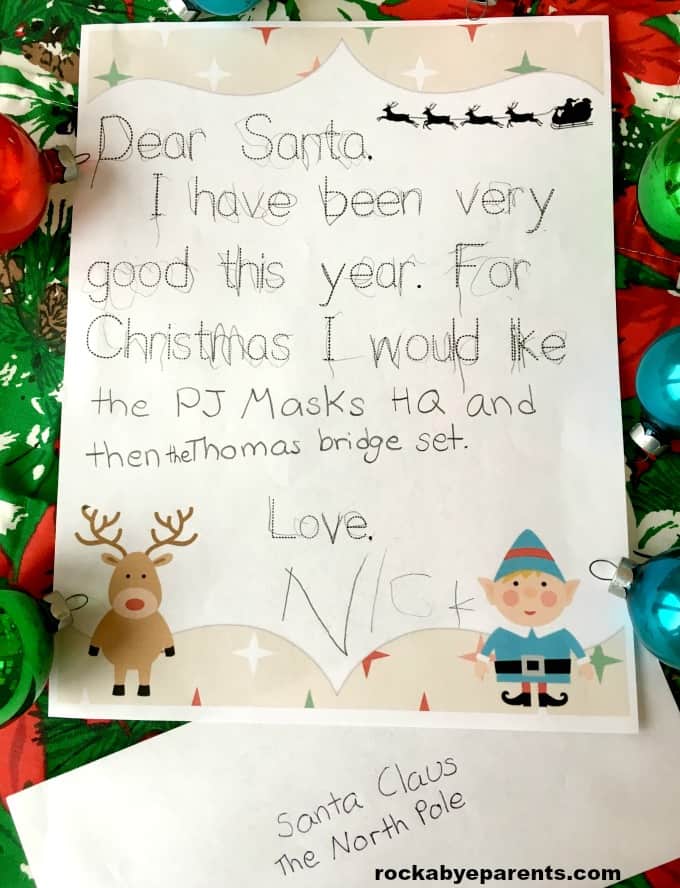 Dear Santa,
I have been very
good this year. For
Christmas I would like
the PJ Masks HQ and
then the Thomas bridge set.
Love,
Nick
Santa Claus
The North Pole
rockabyeparents.com